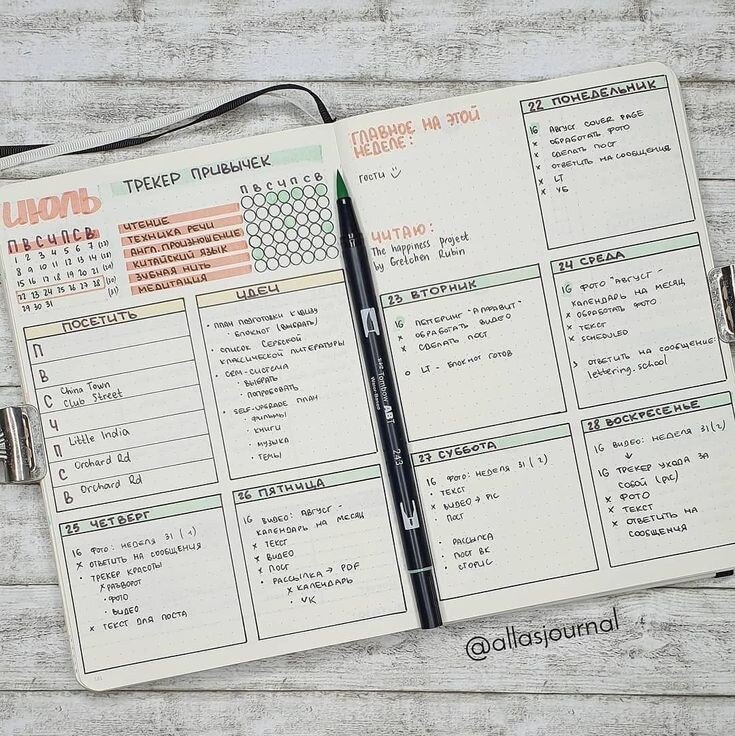 ИЮЛЬ
П В С Ч П С В
1 2 3 4 5 6 7 (27)
8 9 10 11 12 13 14
15 16 17 18 19 20 21
22 23 24 25 26 27 28 (30)
29 30 31 (31)
ТРЕКЕР ПРИВЫЧЕК
П В С Ч П С В
ЧТЕНИЕ
ТЕХНИКА РЕЧИ
АНГЛ. ПРОИЗНОШЕНИЕ
КИТАЙСКИЙ ЯЗЫК
ЗУБНАЯ НИТЬ
МЕДИТАЦИЯ
ПОСЕТИТЬ
П
В
С China Town
Club Street
Ч
П Little India
С Orchard Rd
В Orchard Rd
ИДЕИ
• ПЛАН ПОДГОТОВКИ К
БЛОКНОТ (ВЫБРАТЬ)
• СПИСОК
КЛАССИЧЕСКОЙ ЛИТЕРАТУРЫ
• CRM-СИСТЕМА
• ВЫБРАТЬ
• ПОПРОБОВАТЬ
• SELF-UPGRADE ПЛАН
• ФИЛЬМЫ
• КНИГИ
• МУЗЫКА
• ТЕМЫ
25 ЧЕТВЕРГ
IG ФОТО: НЕДЕЛЯ 31 (1)
× ОТВЕТИТЬ НА СООБЩЕНИЯ
• ТРЕКЕР КРАСОТЫ
× РАЗВОРОТ
• ФОТО
• ВИДЕО
× ТЕКСТ ДЛЯ ПОСТА
26 ПЯТНИЦА
IG ВИДЕО: АВГУСТ -
КАЛЕНДАРЬ НА МЕСЯЦ
× ТЕКСТ
× ВИДЕО
× ПОСТ
• РАССЫЛКА → PDF
× КАЛЕНДАРЬ
• VK
ГЛАВНОЕ НА ЭТОЙ
НЕДЕЛЕ:
ГОСТИ
ЧИТАЮ:
The happiness project
by Gretchen Rubin
22 ПОНЕДЕЛЬНИК
IG АВГУСТ COVER PAGE
× ОБРАБОТАТЬ ФОТО
× СДЕЛАТЬ ПОСТ
× ОТВЕТИТЬ НА СООБЩЕНИЯ
× LT
× УБ
23 ВТОРНИК
IG ЛЕТТЕРИНГ "АЛФАВИТ"
× ОБРАБОТАТЬ ВИДЕО
× СДЕЛАТЬ ПОСТ
○ LT - БЛОКНОТ ГОТОВ
24 СРЕДА
IG ФОТО "АВГУСТ -
КАЛЕНДАРЬ НА МЕСЯЦ
× ОБРАБОТАТЬ ФОТО
× ТЕКСТ
× SCHEDULED
> ОТВЕТИТЬ НА СООБЩЕНИЕ
lettering.school
27 СУББОТА
IG ФОТО: НЕДЕЛЯ 31 (2)
• ТЕКСТ
× ВИДЕО → PIC
• ПОСТ
• РАССЫЛКА
• ПОСТ ВК
• СТОРИС
28 ВОСКРЕСЕНЬЕ
IG ВИДЕО: НЕДЕЛЯ 31 (2)
↓
IG ТРЕКЕР УХОДА ЗА
СОБОЙ (PIC)
× ФОТО
× ТЕКСТ
× ОТВЕТИТЬ НА
СООБЩЕНИЯ
Tombow ABT
243
@allasjournal